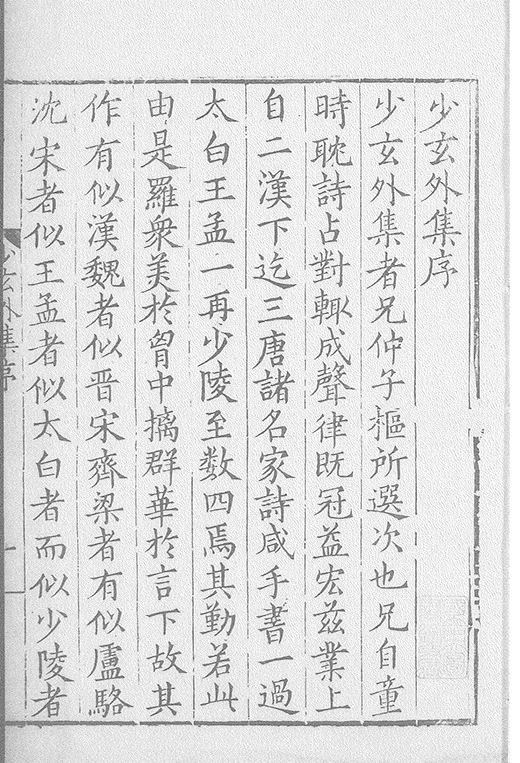 少玄外集序
少玄外集者兄仲子樞所選次也兄自童
時耽詩占對輒成聲律既冠益宏兹業上
自二漢下迄三唐諸名家詩咸手書一過
太白王孟一再少陵至數四焉其勤若此
由是羅衆美於胷中摛群華於言下故其
作有似漢魏者似晋宋齊梁者有似盧駱
沈宋者似王孟者似太白者而似少陵者
少玄外集序
一